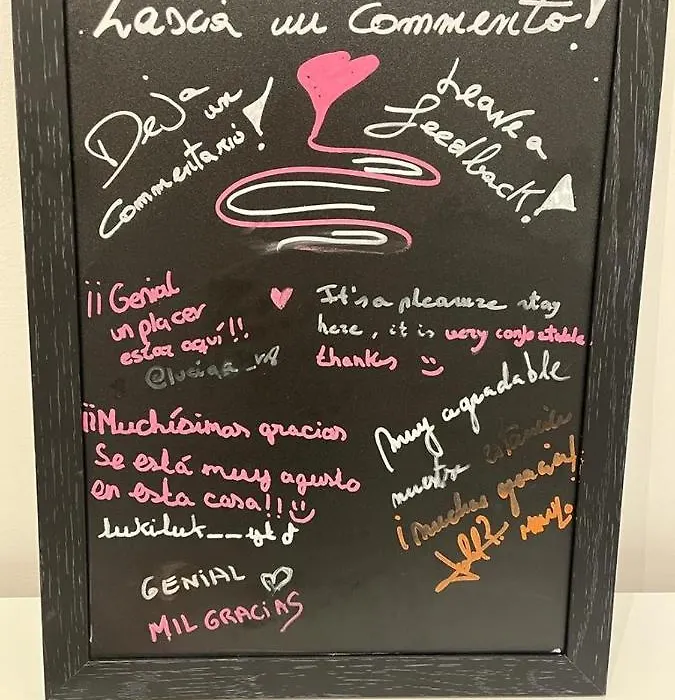 Lascia un Commento!
Deja un
Commentario!
Leave a
feedback!
¡¡Genial
un placer
estar aquí!!
It's a pleasure stay
here, it is very confortable
thanks
¡¡Muchísimas gracias
Se está muy agusto
en esta casa!!
Muy agradable
nuestra estancia
¡muchas gracias!
GENIAL
MIL GRACIAS